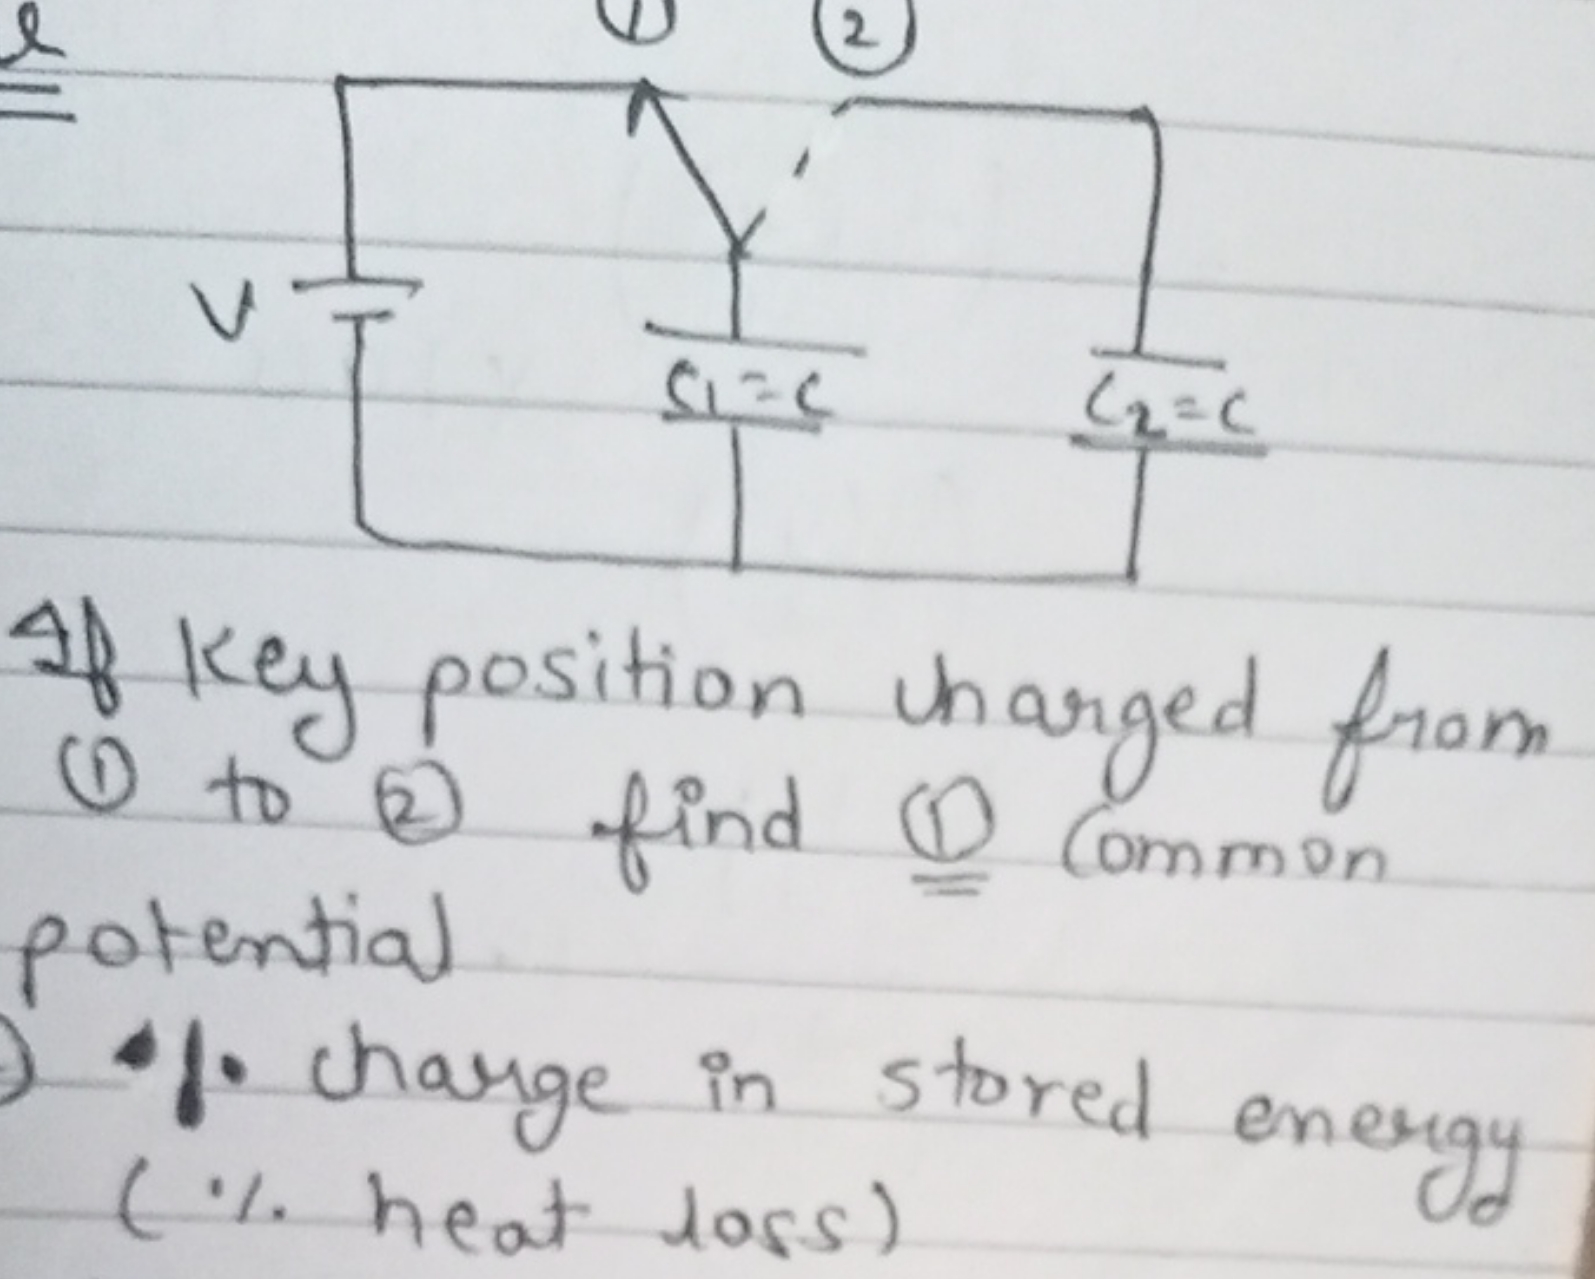 ① ②
V
C₁=C
C₂=C
If key position changed from
① to ② find ① Common
potential
% change in stored energy
(% heat loss)